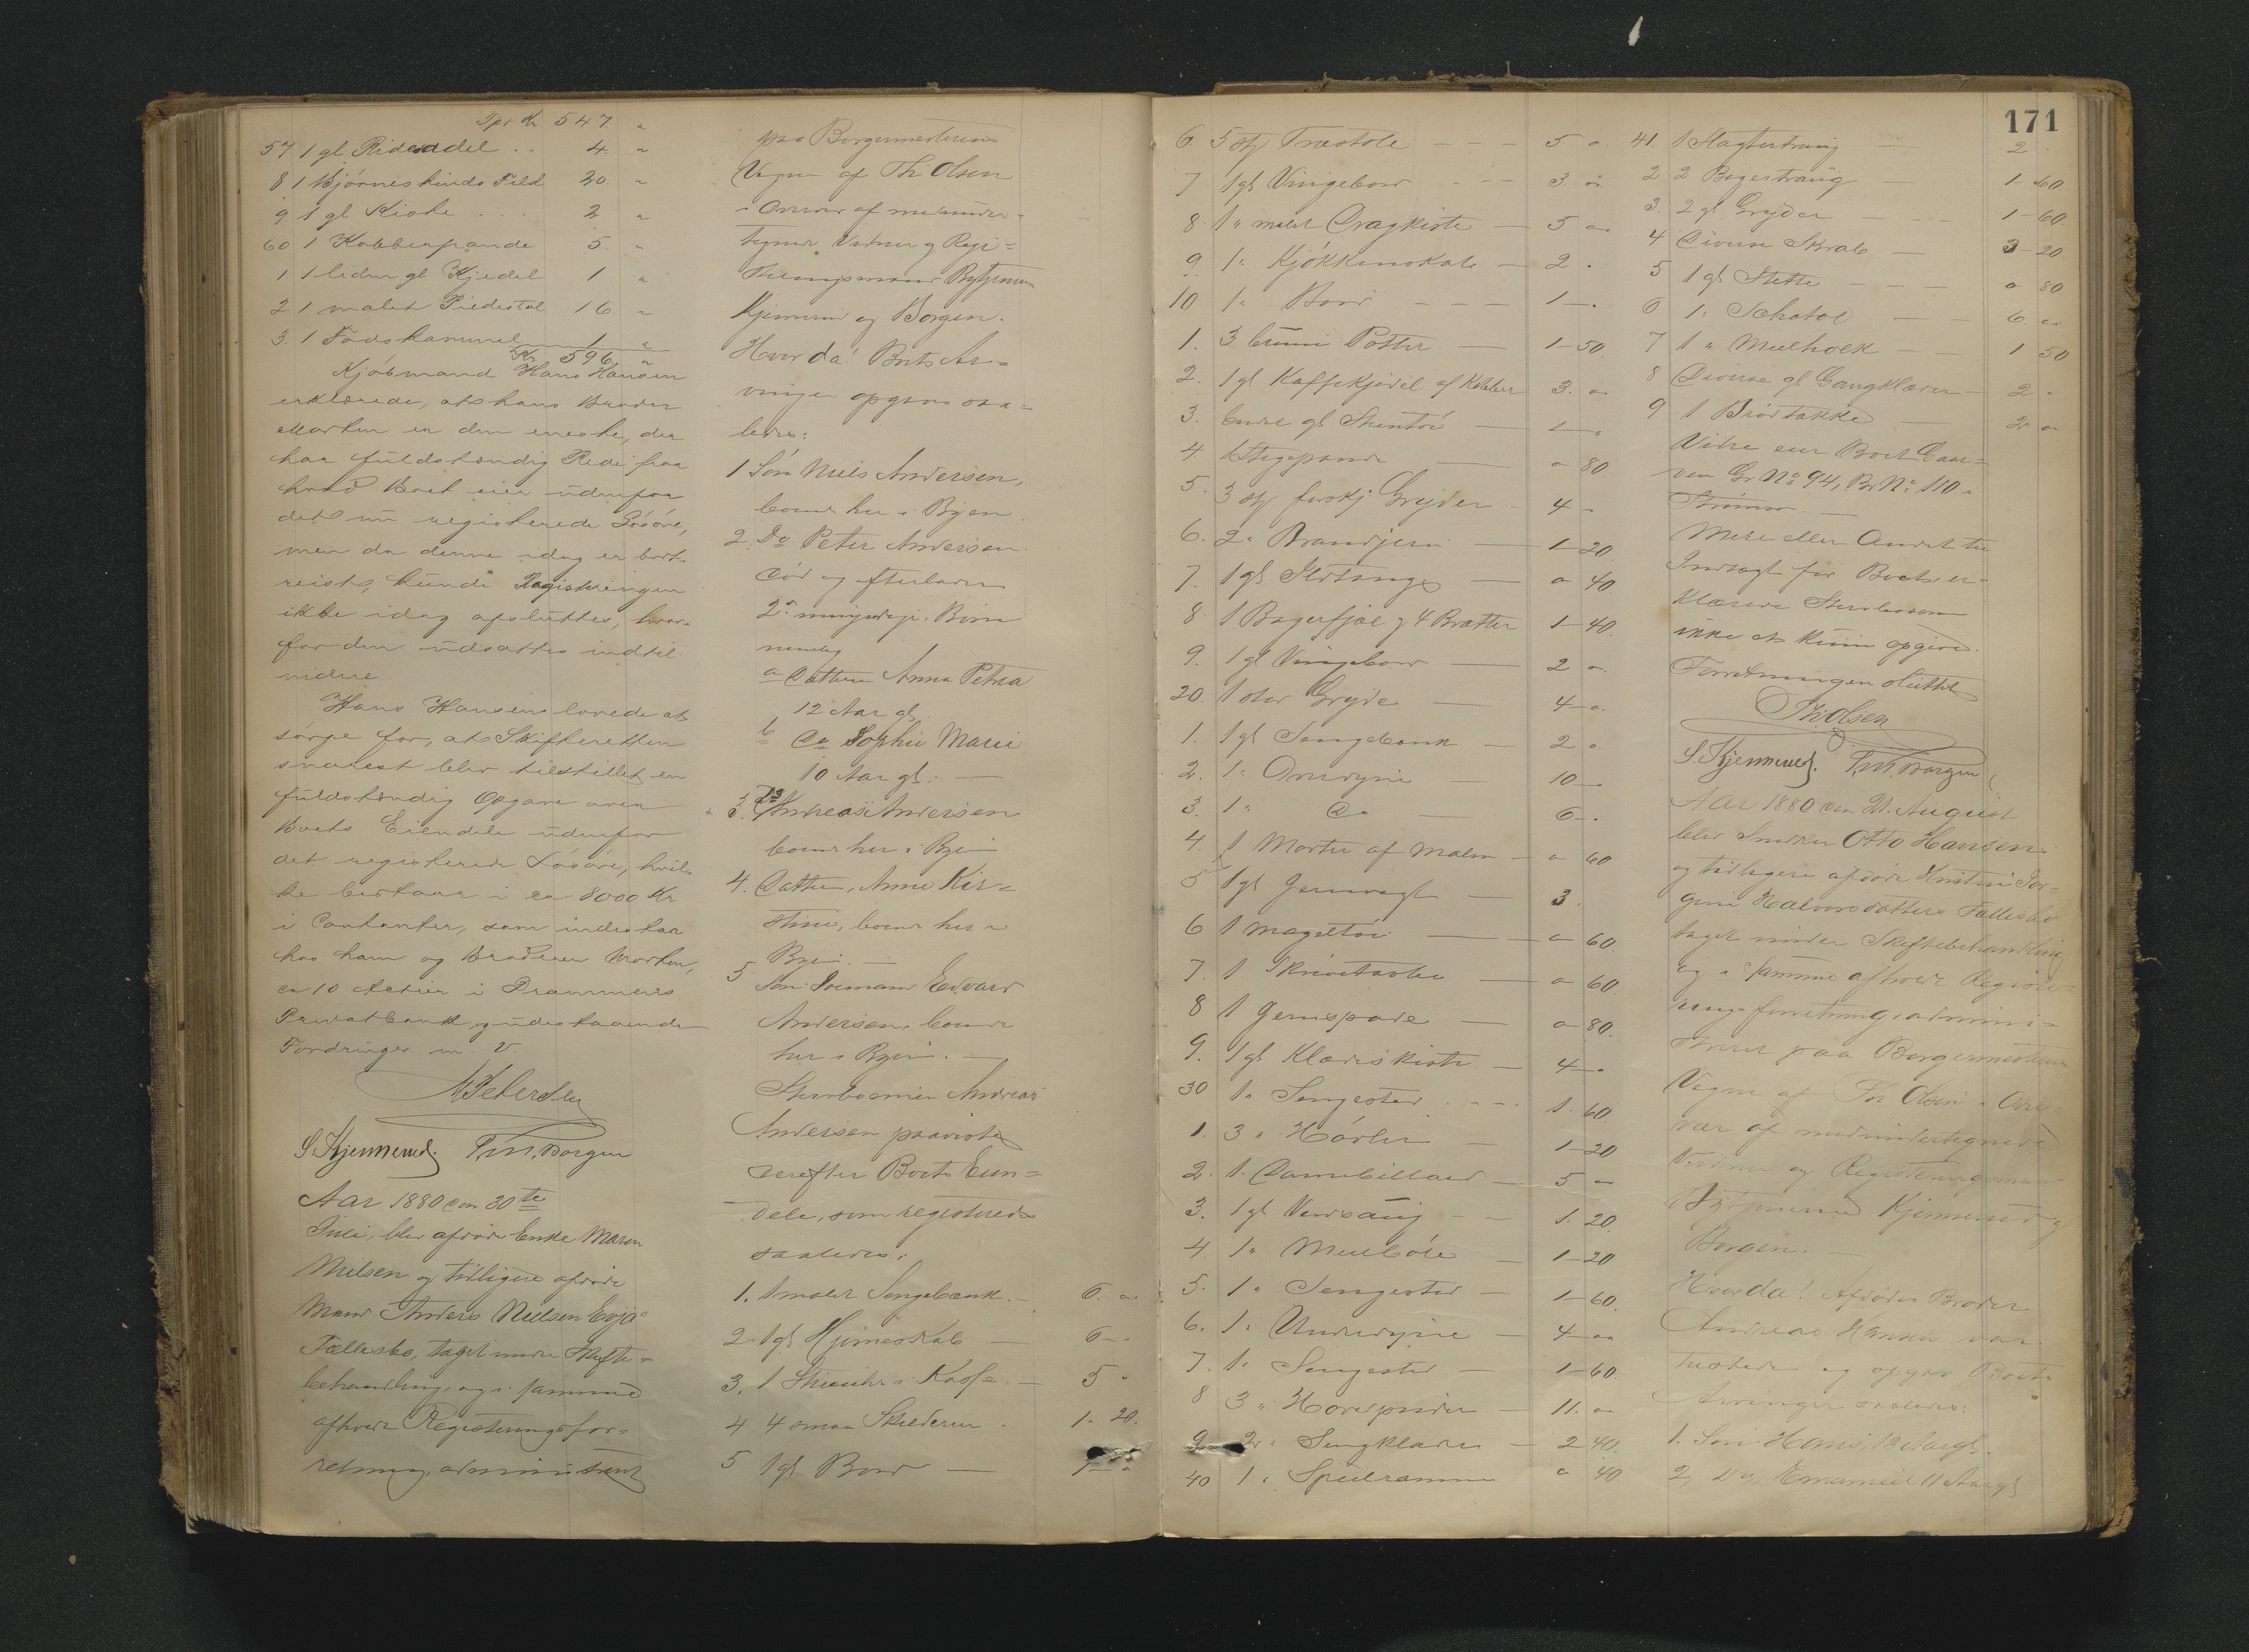 Tpt Kr 547 "
57 1 gl Ridesadel . . 4. "
8 1 Bjørneskinds Feld 20. "
9. 1 gl Kiste . . . 2. "
60 1 Kobberpande 5. "
1 1 liden gl Kjedel 1 "
2 1 malet Piedestal 16 "
3. 1 Fodskammel 1 "
Kr 596 "
Kjøbmand Hans Hansen
erklærede, at hans Broder
Morten er den eneste, der
har fuldstændig Rede paa
hvad Boet eier udenfor
det nu registrerede Løsøre,
men da denne idag er bort-
reist, kunde Registreringen
ikke idag afsluttes, hvor-
for den udsattes indtil
videre
Hans Hansen lovede at
sørge for, at Skifteretten
snarest blev tilstillet en
fuldstændig Opgave over
Boets Eiendele udenfor
det registrerede Løsøre, hvil-
ke bestaar i ca 8000 Kr
i Contanter, som indestaar
hos ham og Broderen Morten,
ca 10 Actier i Drammens
Privatbank, og udestaaende
Fordringer m. V.
S. Kjennerud. T. M. Borgen
Aar 1880 den 30te
Juli, blev afdøde Enke Maren
Nielsen og tidligere afdøde
Mand Anders Nielsen Evja's
Fællesbo, taget under Skifte=
behandling, og i samme
afholdt Registeringsfor=
retning, administreret
paa Borgermesterens
Vegne af Th Olsen
i Overvær af medunder=
tegnede Vidner og Regi=
streringsmænd
Kjennerud og Borgen.
Hvorda! Boets Ar=
vinger opgaves saa=
ledes:
1 Søn Niels Andersen,
boende her i Byen
2. Do Peter Andersen.
død og efterlader
2de umyndige Børn
nemlig
a Datteren Anna Petra
12 Aar gl.
b Do Sophie Marie
10 Aar gl. —
3. Do Andreas Andersen
boende her i Byen
4. Datter, Anne Kir=
stine, boende her i
Byen. —
5. Søn Sømand Edvard
Andersen, boende
her i Byen. —
Stervboesønnen Andreas
Andersen paaviste
derefter Boets Eien=
dele, som registreredes
saaledes:
1. 1 malet Sengebænk — 6. "
2. 1 gl Hjørneskab — 6 —
3. 1 Stueuhr i Kasse — 5 "
4 4 smaa Skilderier . 1. 20.
5 1 gl Bord — 1 — "
171
6. 5 stk Træstole - - - 5 "
7 1 gl Vingebord - - - 3. "
8. 1 " malet Dragkiste — 5 "
9. 1 " Kjøkkenskab — 2 .
10 1 " Bord - - - 1 — .
1. 3 brune Potter — 1 - 50.
2. 1 gl Kaffekjedel af Kobber 3. "
3. Endel gl Stentøi — 1 — "
4 1 Stegepande — " 80.
5. 3 stk forskj Gryder - 4 -
6. 2 " Brandjern — 1 - 20.
7. 1 gl Ildtang — " 40.
8. 1 Bagerfjæl og 4 Brætter 1 - 40.
9. 1 gl Vingebord — 2 "
20. 1 stor Gryde — 4 - "
1. 1 gl Sengebænk — 2 "
2. 1 " Overdyne — 10 —
3. 1 " Do — 6 - .
4. 1 Morter af Malm — " 60
5 1 gl Jernvægt — 3 .
6 1 Mageltøi — " 60.
7. 1 Skrivetavle — " 60.
8 1 Jernspade — " 80.
9. 1 gl Klædeskiste — 4 - "
30 1 " Sengested . - - - 1. 60.
1. 3 " Høvler — 1 - 20
2. 1 " Damebillard — 5 —
3. 1 gl Vendsaug - - 1. 20.
4. 1 " Meelbøle — 1 - 20
5. 1 " Sengested — 1 - 60.
6. 1 " Underdyne — 4 - "
7. 1 " Sengested — 1 - 60
8 3 " Hovedpuder — 11. "
9 2 " Sengklæder — 2 40.
40 1 " Speilramme " 40
41. 1 Slagtertraug — 2 .
2 2 Bagertraug — 1 - 60
3. 2 gl Gryder — 1 - 60.
4 Diverse Skrab — 3 - 20
5 1 gl Støtte - - - " 80
6 1 " Schatol — 6 "
7 1 " Meelholk — 1 50
8 Diverse gl Gangklæder — 2 "
9 1 Brødtakke — 2 "
Videre eier Boet Gaar=
den Gr No 94, Br No 110 i
Strømsø. —
Mere eller Andet til
Indtægt for Boet er=
klærede Stervboesønnen
ikke at kunne opgive.
Forretningen sluttet
Th. Olsen
S. Kjennerud. T. M. Borgen
Aar 1880 den 21. August
blev Snedker Otto Hansen
og tidligere afdøde Hustru Jør=
gine Halvorsdatters Fællesbo
taget under Skiftebehandling
og i samme afholdt Registe=
ringsforretning, admini=
streret paa Borgermesterens
Vegne af Th Olsen i Over=
vær af medundertegnede
Vidner og Registeringsmænd
Kjennerud og
Borgen. —
Hvorda! Afdødes Broder
Andreas Hansen var
tilstede og opgav Boets
Arvinger saaledes:
1. Søn Hans, 13 Aar gl.
2, Do, Emanuel 11 Aar gl